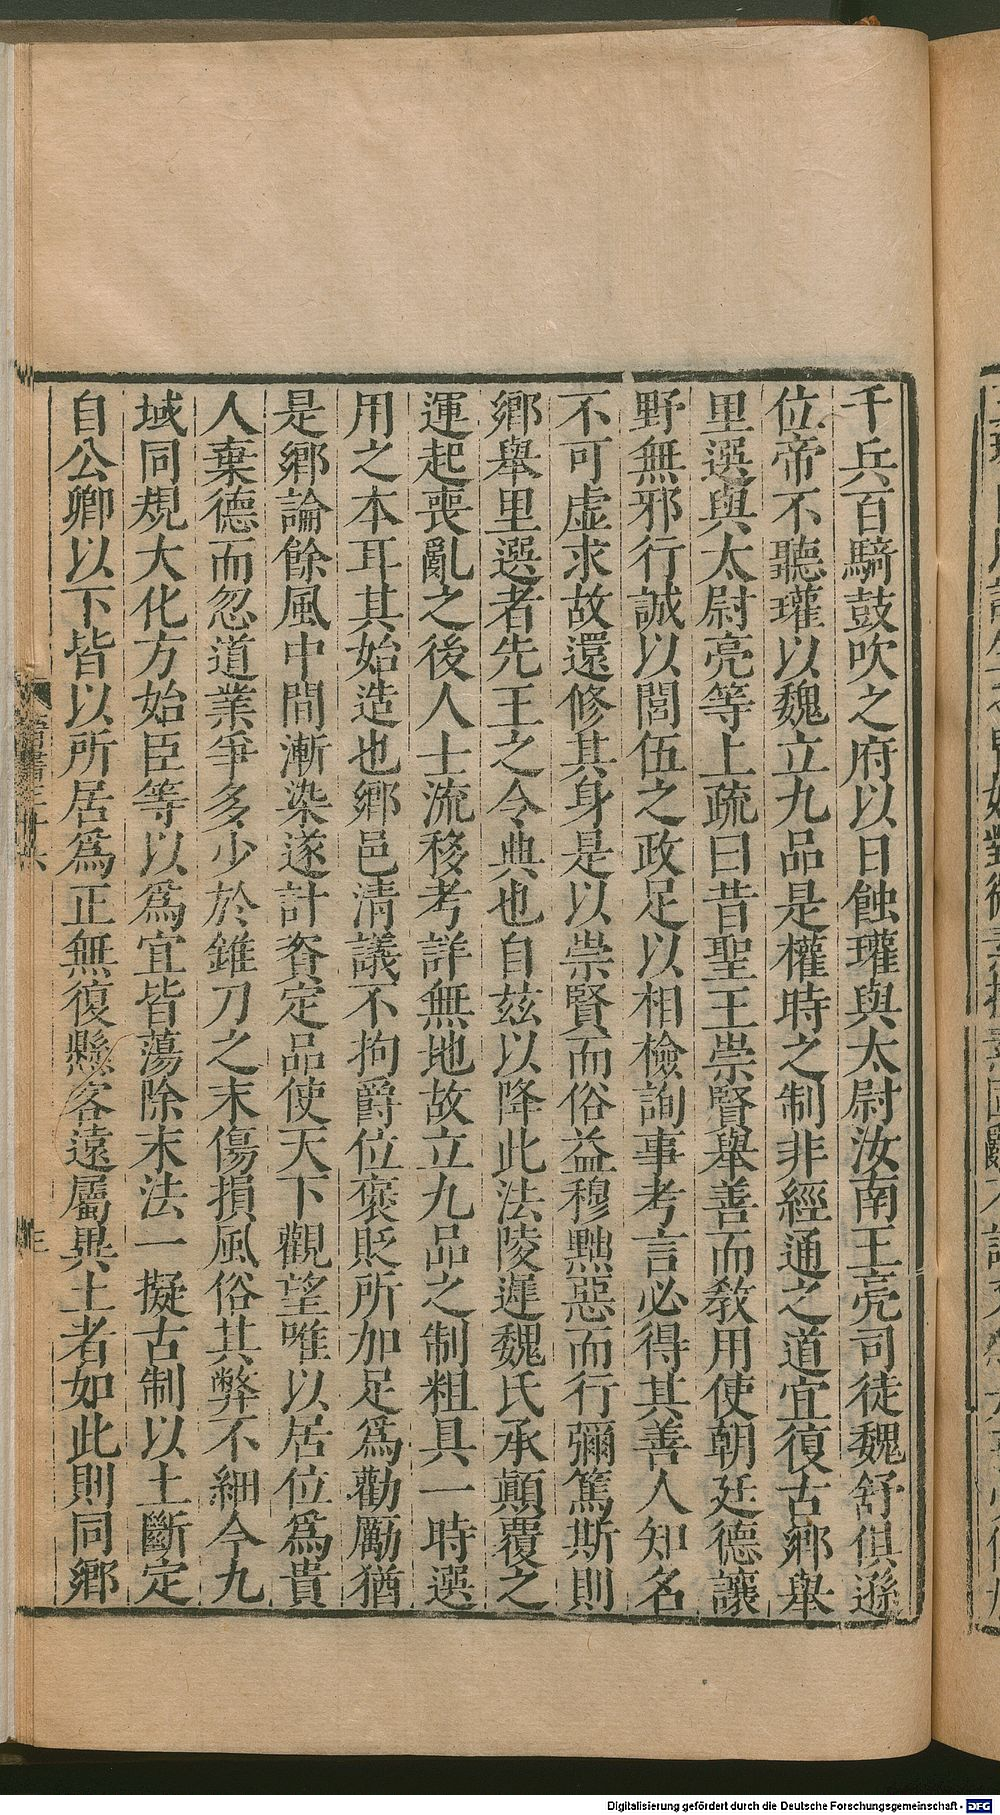 千兵百騎鼓吹之府以日蝕瓘與太尉汝南王亮司徒魏舒俱遜
位帝不聽瓘以魏立九品是權時之制非經通之道宜復古鄉舉
里選與太尉亮等上疏曰昔聖王崇賢舉善而敎用使朝廷德讓
野無邪行誠以閭伍之政足以相檢詢事考言必得其善人知名
不可虛求故還修其身是以崇賢而俗益穆黜惡而行彌篤斯則
鄉舉里選者先王之令典也自茲以降此法陵遲魏氏承顛覆之
運起喪亂之後人士流移考詳無地故立九品之制粗具一時選
用之本耳其始造也鄉邑清議不拘爵位褒貶所加足爲勸勵猶
是鄉論餘風中間漸染遂計資定品使天下觀望唯以居位爲貴
人棄德而忽道業爭多少於錐刀之末傷損風俗其弊不細今九
域同規大化方始臣等以爲宜皆蕩除末法一擬古制以土斷定
自公卿以下皆以所居爲正無復懸客遠屬異土者如此則同鄉
Digitalisierung gefördert durch die Deutsche Forschungsgemeinschaft - DFG